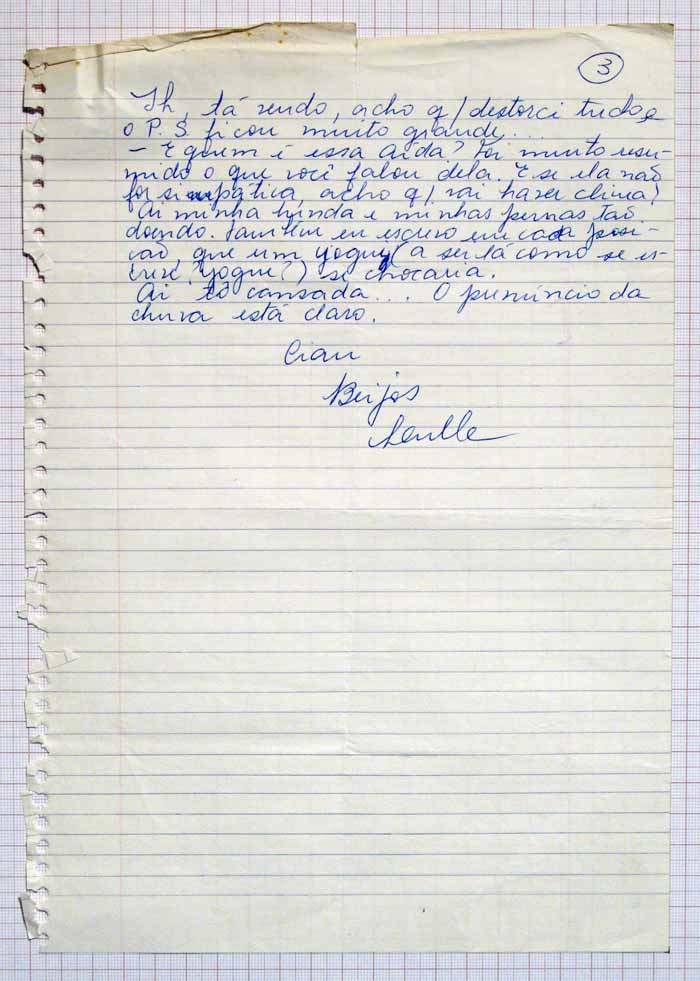 3
Ih, tá vendo, acho q/ destorci tudo e
o P. S. ficou muito grande...
– E quem é essa Aída? Foi muito resu-
mido o que você falou dela. E se ela não
for simpática, acho q/ vai haver clima!
Ai minha bunda e minhas pernas tão
doendo. Também eu escrevo em cada posi-
ção, que um yoguy (a sei lá como se es-
creve? yogue?) se chocaria.
Ai tô cansada... O prenúncio da
chuva está claro.
Ciau
Beijos